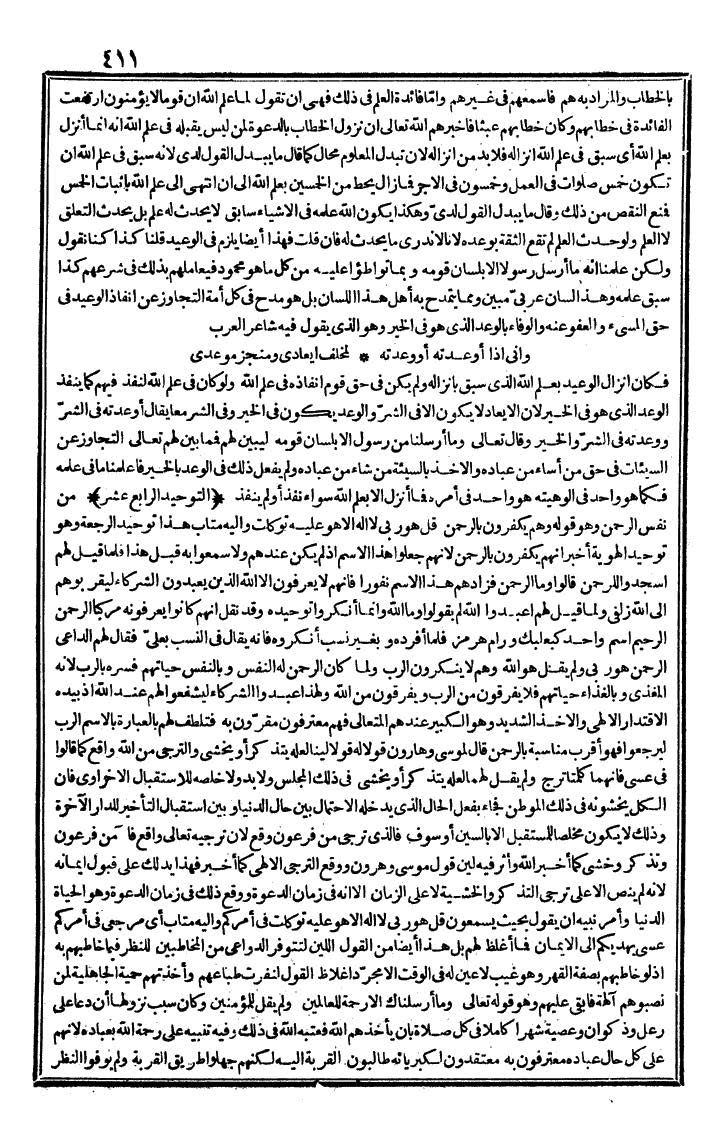 ٤١١
بالخطاب والمراد به هم فاسمعهم فى غيرهم وامّا فائدة العلم فى ذلك فهى ان تقول لما علم الله ان قوما لا يؤمنون ارتفعت
الفائدة فى خطابهم وكان خطابهم عبثا فاخبرهم الله تعالى ان نزول الخطاب بالدعوة لمن ليس يقبله فى علم الله انه انما أنزل
بعلم الله أى سبق فى علم الله انزاله فلا بد من انزاله لان تبدل المعلوم محال كما قال ما يبدل القول لدى لانه سبق فى علم الله ان
تكون خمس صلوات فى العمل وخمسون فى الاجر فما زال يحط من الخمسين بعلم الله الى ان انتهى الى علم الله باثبات الخمس
فمنع النقص من ذلك وقال ما يبدل القول لدىّ وهكذا يكون الله علمه فى الاشياء سابق لا يحدث له علم بل يحدث التعلق
لا العلم ولو حدث العلم لم تقع الثقة بوعده لانا لا ندرى ما يحدث له فان قلت فهذا أيضا يلزم فى الوعيد قلنا كذا كنا نقول
ولكن علمنا انه ما أرسل رسولا الا بلسان قومه و بما تواطؤا عليه من كل ما هو محمود فيعاملهم بذلك فى شرعهم كذا
سبق علمه وهذا لسان عربىّ مبين ومما يتمدح به أهل هذا اللسان بل هو مدح فى كل أمة التجاوز عن انفاذ الوعيد فى
حق المسىء والعفو عنه والوفاء بالوعد الذى هو فى الخير وهو الذى يقول فيه شاعر العرب
وانى اذا أوعدته أو وعدته * لمخلف ايعادى ومنجز موعدى
فكان انزال الوعيد بعلم الله الذى سبق بانزاله ولم يكن فى حق قوم انفاذه فى علم الله ولو كان فى علم الله لنفذ فيهم كما ينفذ
الوعد الذى هو فى الخير لان الايعاد لا يكون الا فى الشرّ والوعد يكون فى الخير وفى الشر معا يقال أوعدته فى الشرّ
ووعدته فى الشرّ والخير وقال تعالى وما أرسلنا من رسول الا بلسان قومه ليبين لهم فمما بين لهم تعالى التجاوز عن
السيئات فى حق من أساء من عباده والاخذ بالسيئة من شاء من عباده ولم يفعل ذلك فى الوعد بالخير فاعلمنا ما فى علمه
فكما هو واحد فى الوهيته هو واحد فى أمره فما أنزل الا بعلم الله سواء نفذ أو لم ينفذ ﴿التوحيد الرابع عشر﴾ من
نفس الرحمن وهو قوله وهم يكفرون بالرحمن قل هو ربى لا اله الا هو عليه توكلت واليه متاب هذا توحيد الرجعة وهو
توحيد الهوية أخبر انهم يكفرون بالرحمن لانهم جهلوا هذا الاسم اذ لم يكن عندهم ولا سمعوا به قبل هذا فلما قيل لهم
اسجدوا للرحمن قالوا وما الرحمن فزادهم هذا الاسم نفورا فانهم لا يعرفون الا الله الذين يعبدون الشركاء ليقربوهم
الى الله زلفى ولما قيل لهم اعبدوا الله لم يقولوا وما الله وانما أنكروا توحيده وقد نقل انهم كانوا يعرفونه مركبا الرحمن
الرحيم اسم واحد كبعلبك ورام هرمز فلما أفرده و بغير نسب أنكروه فانه يقال فى النسب بعلىّ فقال لهم الداعى
الرحمن هو ربى ولم يقل هو الله وهم لا ينكرون الرب ولما كان الرحمن له النفس و بالنفس حياتهم فسره بالرب لانه
المغذى و بالغذاء حياتهم فلا يفرقون من الرب ويفرقون من الله ولهذا عبدوا الشركاء ليشفعوا لهم عند الله اذ بيده
الاقتدار الالهى والاخذ الشديد وهو الكبير عندهم المتعالى فهم معترفون مقرّون به فتلطف لهم بالعبارة بالاسم الرب
ليرجعوا فهو أقرب مناسبة بالرحمن قال لموسى وهارون قولا له قولا لينا لعله يتذكر أو يخشى والترجى من الله واقع كما قالوا
فى عسى فانهما كلمتا ترج ولم يقل لهما لعله يتذكر أو يخشى فى ذلك المجلس ولا بد ولا خلصه للاستقبال الاخراوى فان
الكل يخشونه فى ذلك الموطن فجاء بفعل الحال الذى يدخله الاحتمال بين حال الدنيا و بين استقبال التأخير للدار الآخرة
وذلك لا يكون مخلصا للمستقبل الا بالسين أو سوف فالذى ترجى من فرعون وقع لان ترجيه تعالى واقع فآمن فرعون
وتذكر وخشى كما أخبر الله وأثر فيه لين قول موسى وهرون ووقع الترجى الالهى كما أخبر فهذا يدلك على قبول ايمانه
لانه لم ينص الا على ترجى التذكر والخشية لا على الزمان الا انه فى زمان الدعوة ووقع ذلك فى زمان الدعوة وهو الحياة
الدنيا وأمر نبيه ان يقول بحيث يسمعون قل هو ربى لا اله الا هو عليه توكلت فى أمركم واليه متاب أى مرجعى فى أمركم
عسى يهديكم الى الايمان فما أغلظ لهم بل هذا أيضا من القول اللين لتتوفر الدواعى من المخاطبين للنظر فيما خاطبهم به
اذ لو خاطبهم بصفة القهر وهو غيب لا عين له فى الوقت الا مجرّد اغلاظ القول لنفرت طباعهم وأخذتهم حمية الجاهلية لمن
نصبوهم آلهة فابقى عليهم وهو قوله تعالى وما أرسلناك الا رحمة للعالمين ولم يقل للمؤمنين وكان سبب نزولها أن دعا على
رعل وذكوان وعصية شهرا كاملا فى كل صلاة بان يأخذهم الله فعتبه الله فى ذلك وفيه تنبيه على رحمة الله بعباده لانهم
على كل حال عباده معترفون به معتقدون لكبريائه طالبون القربة اليه لكنهم جهلوا طريق القربة ولم يوفوا النظر